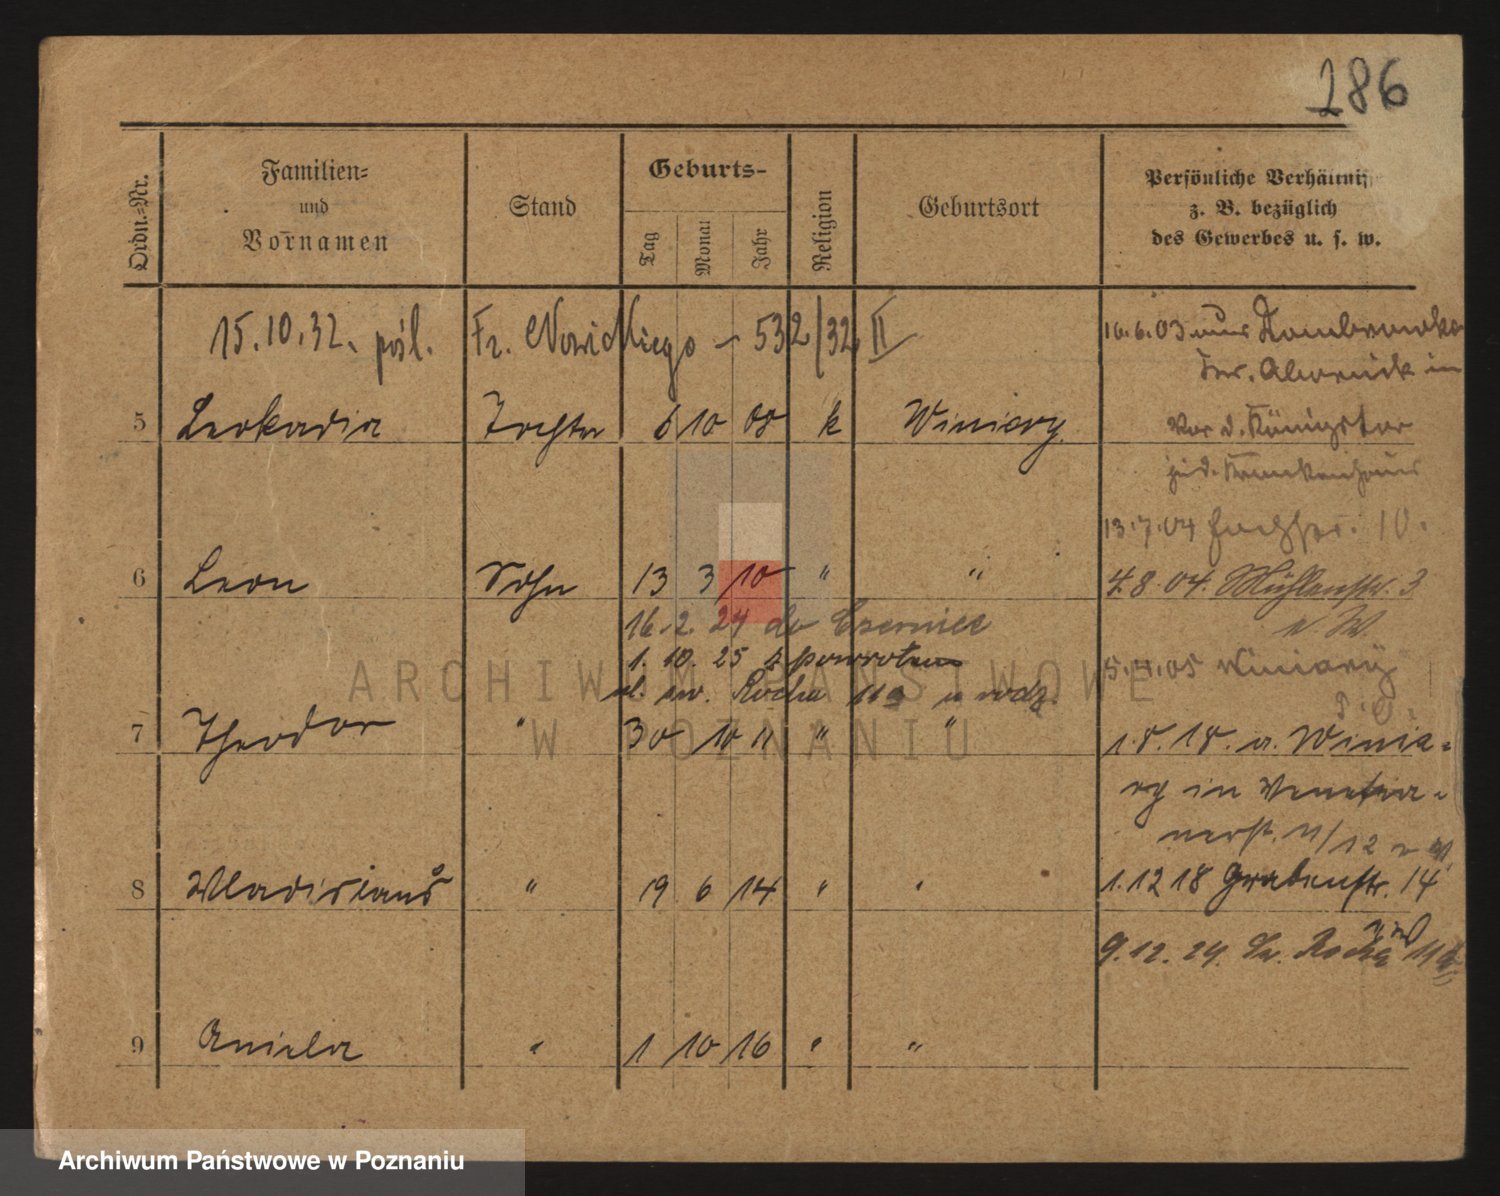 286
Ordn.=Nr.
Familien=
und
Vornamen
Stand
Geburts-
Tag
Monat
Jahr
Religion
Geburtsort
Persönliche Verhältniss
z. B. bezüglich
des Gewerbes u. s. w.
15.10.32. pośl. Fr. Nowickiego – 532/32 II
16.6.03
in
5 Leokadia Tochter 6 10 08 k Winiary
Vor d. Königstor
jüd. Krankenhaus
13.7.04 10.
6 Leon Sohn 13 3 10 " "
4.8.04. Mühlenstr. 3
16.2.24 do
1.10.25 z powrotem
5. 05 Winiary
ul. św. Rocha 11a u rodz.
7 Theodor " 30 10 11 " "
1.8.18. a. Winia-
ry in Venetia-
nerst. 11/12
8 Wladislaus " 19 6 14 " "
1.12 18 Grabenstr. 14
9.12.24. Św. Rocha 11a
9 Aniela " 1 10 16 " "
ARCHIWUM PAŃSTWOWE
W POZNANIU
Archiwum Państwowe w Poznaniu